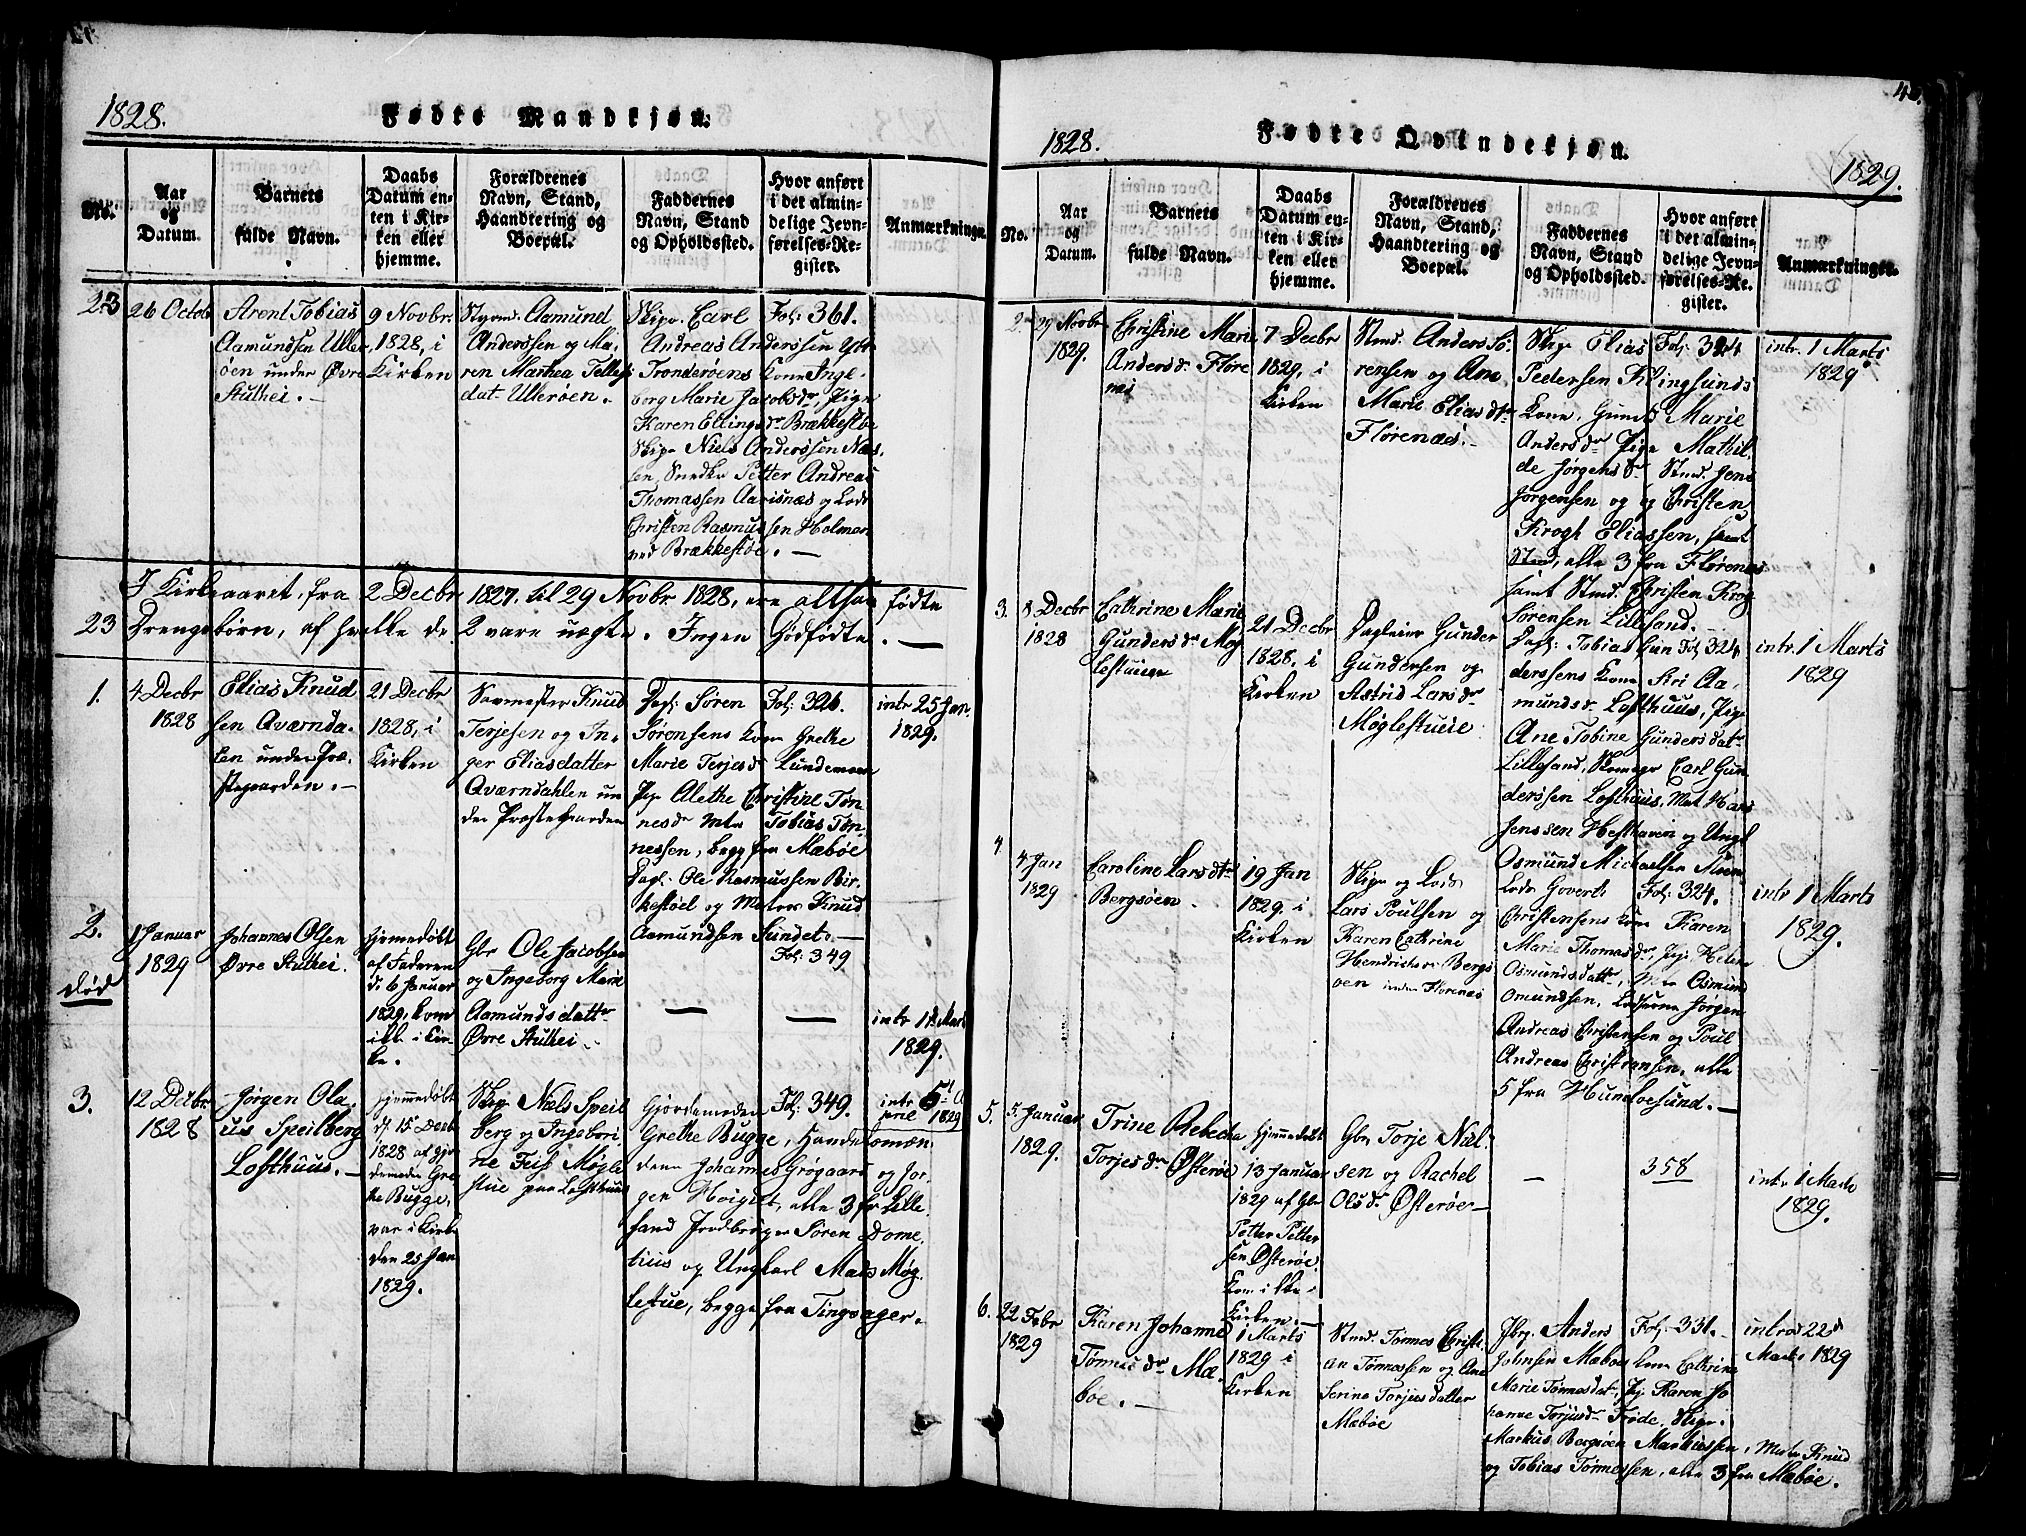 1828.
Fødte Mandkjøn.
No.
Aar
og
Datum.
Barnets
fulde Navn.
Daabs
Datum en-
ten i Kir-
ken eller
hjemme.
Forældrenes
Navn, Stand,
Haandtering og
Boepæl.
Faddernes
Navn, Stand
og Opholdssted.
Hvor anført
i det almin-
delige Jevn-
førelses-Re-
gister.
Anmærkninger.
23
26 Octob
Arent Tobias
Aamundsen Uller
öen under Øvre
Stuthei.
9 Novbr.
1828, i
Kirken
Aamund
Anderssen og Ma-
ren Marthea Tellefs
dat. Ullerøen.
Skipr. Carl
Andreas Anderssen
Trondøens Kone Inge-
borg Marie Jacobsdr, Pige
Karen Ellingsdr Brækkestøe
Skipr Niels Anderssen
Petter Andreas
Thomassen Aarisnæs og
Christen Rasmussen Holmen
ved Brækkestøe.
Fol: 361.
I Kirkeaaret, fra 2 Decbr 1827, til 29 Novbr 1828, ere altsaa fødte
23 Drengebørn, af hvilke de 2 vare uægte. Ingen Dødfødte.
1.
4 Decbr
1828
Elias Knud
sen Aværnda-
len under Præ-
stegaarden.
21 Decbr
1828, i
Kirken
Knud
Terjesen og In-
ger Eliasdatter
Aværndahlen un
der Præstegaarden
Dagl: Søren
Sørensens Kone Grethe
Marie Terjesdr Lundemoen
Pige Alethe Christine Tøn-
nesdr Mtr Tobias Tøn-
nessen, begge fra Mæbøe
Dagl: Ole Rasmussen Bir-
kestøel og Matros Knud
Aamundsen Sundet.
Fol: 326.
intr 25 Jan.
1829.
2.
død
1 Januar
1829
Johannes Olsen
Øvre Stuthei.
hjemmedøbt
af Faderen
d: 6 Januar
1829, kom
ikke i Kir-
ke.
Gbr Ole Jacobsen
og Ingeborg Marie
Aamundsdattr
Øvre Stuthei
Fol: 349
intr 1 Mart
1829.
3.
12 Decbr
1828
Jørgen Ola-
us Speilberg
Lofthuus.
hjemmedøbt
d. 15 Decb
1828 af Gjor
demoder Gre
the Bugge,
var i Kirke
den 25 Jan
1829.
Skipr Niels Speil
berg og Ingebori-
ne Feiss Møgle
stue paa Lofthuus
Gjordemoder
Grethe Bugge, Handelsmæn-
dene Johannes Grøgaard og Jør-
gen Høigel, alle 3 fr Lille-
sand Søren Dome-
tius og Ungkarl Mads Møg-
lestue, begge fra Tingsager.
Fol: 349.
intr 5 A
pril 1829
1828.
Fødte Qvindekjøn.
1829.
No.
Aar
og
Datum.
Barnets
fulde Navn.
Daabs
Datum en-
ten i Kir-
ken eller
hjemme.
Forældrenes
Navn, Stand,
Haandtering og
Boepæl.
Faddernes
Navn, Stand
og Opholdssted.
Hvor anført
i det almin-
delige Jevn-
førelses-Re-
gister.
Anmærkninger.
2.
29 Novbr
1829.
Christine Marie
Andersdr Fløre
næs
7 Decbr
1829, i
Kirken
Stmd. Anders Sø-
rensen og Ane
Marie Eliasdtr
Flørenæs.
Skipr Elias
Pedersen
Kone, Marie
Andersdr Pige Mathil-
de Jørgensdr Stmd. Jens
Jørgensen og Christen
Krogh Eliassen,
Stmd, alle 3 fra Flørenæs
samt Stmd. Christen Krog
Sørensen Lillesand.
Fol: 324
intr. 1 Marts
1829
3.
8 Decbr
1828
Cathrine Marie
Gundersdr Møg
lestuien
21 Decbr
1828, i
Kirken
Dagleier Gunder
Gundersen og
Astrid Larsdr
Møglestueie
Dagl: Tobias Gun
derssens Kone Kri Aa-
mundsdr Lofthuus, Pige
Ane Tobine Gundersdatr
Lillesand, Carl Gun
derssen Lofthuus, Mat Hans
Jenssen Hefthaven og Ungk
Osmund Michaelsen
Fol 324
intr. 1 Marts
1829
4
4 Jan
1829
Caroline Larsdtr
Bergsøen
19 Jan
1829, i
Kirken
Skipr og Lods
Lars Poulsen og
Karen Cathrine
Hendrichsdr Bergs
öen under Florenæs
Lods Govert
Christensens Kone Karen
Marie Thomasdr, Pige Helene
Osmundsdattr, Mtr Osmund
Omundsen, Lodserne Jørgen
Andreas Christensen og Poul
Andreas Christiansen, alle
5 fra Humlesund.
Fol: 324.
intr 1 Marts
1829.
5.
5. Januar
1829.
Trine Rebecka
Torjesdr Østerøe
hjemmedøbt
13 Januar
1829 af Gbr
Petter Petter
sen Østerøe.
Kom i ikke
Kirken.
Gbr Torje Niel-
sen og Rachel
Olsdr Østerøe
358
intr. 1 Marts
1829.
6.
22 Febr
1829
Karen Johanne
Tønnesdr Mæ-
bøe.
1 Marts
1829 i
Kirken
Stmd. Tønnes Christi
an Tønnessen og Ane
Serine Torjusdatter
Mæbøe
Jbrg. Anders
Johnsen Mæbøes Kone Cathrine
Marie Tønnesdatr, Pig Karen Jo
hanne Torjusdr Trøde, Skipr.
Markus Bergsøen Markussen, Matr Knud
og Tobias Tønnessen, alle 3 fra Mæbøe.
Fol: 331.
introd 22
Marts 1829